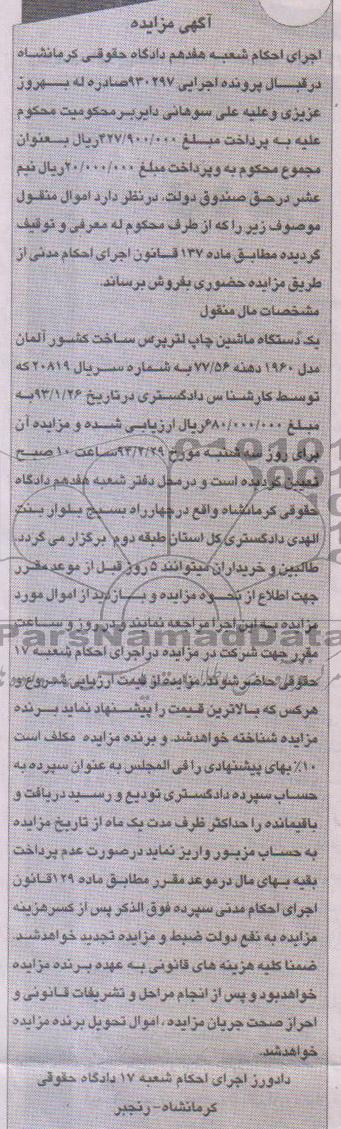 آگهی مزایده
اجرای احکام شعبه هفدهم دادگاه حقوقی کرمانشاه
درقبال پرونده اجرایی ۹۳۰۲۹۷صادره له بهروز
عزیزی وعلیه علی سوهانی دایربرمحکومیت محکوم
علیه به پرداخت مبلغ ۴۲۷/۹۰۰/۰۰۰ریال بعنوان
مجموع محکوم به وپرداخت مبلغ ۲۰/۰۰۰/۰۰۰ریال نیم
عشر درحق صندوق دولت، درنظر دارد اموال منقول
موصوف زیر را که از طرف محکوم له معرفی و توقیف
گردیده مطابق ماده ۱۳۷ قانون اجرای احکام مدنی از
طریق مزایده حضوری بفروش برساند.
مشخصات مال منقول
یک دستگاه ماشین چاپ لترپرس ساخت کشور آلمان
مدل ۱۹۶۰ دهنه ۷۷/۵۶ به شماره سریال ۲۰۸۱۹ که
توسط کارشناس دادگستری درتاریخ ۹۳/۱/۲۶به
مبلغ ۶۸۰/۰۰۰/۰۰۰ریال ارزیابی شده و مزایده آن
برای روز سه شنبه مورخ ۹۳/۲/۲۹ساعت ۱۰ صبح
تعیین گردیده است و درمحل دفتر شعبه هفدهم دادگاه
حقوقی کرمانشاه واقع درچهارراه بسیج بلوار بنت
الهدی دادگستری کل استان طبقه دوم برگزار می گردد.
طالبین و خریداران میتوانند ۵ روز قبل از موعد مقرر
جهت اطلاع از نحوه مزایده و بازدید از اموال مورد
مزایده به این اجرا مراجعه نمایند و در روز و ساعت
مقرر جهت شرکت در مزایده در اجرای احکام شعبه ۱۷
حقوقی حاضر شوند. مزایده از قیمت ارزیابی شروع و
هرکس که بالاترین قیمت را پیشنهاد نماید برنده
مزایده شناخته خواهدشد. و برنده مزایده مکلف است
۱۰٪ بهای پیشنهادی را فی المجلس به عنوان سپرده به
حساب سپرده دادگستری تودیع و رسید دریافت و
باقیمانده را حداکثر ظرف مدت یک ماه از تاریخ مزایده
به حساب مزبور واریز نماید درصورت عدم پرداخت
بقیه بهای مال درموعد مقرر مطابق ماده ۱۲۹قانون
اجرای احکام مدنی سپرده فوق الذکر پس از کسرهزینه
مزایده به نفع دولت ضبط و مزایده تجدید خواهدشد.
ضمنا کلیه هزینه های قانونی به عهده برنده مزایده
خواهدبود و پس از انجام مراحل و تشریفات قانونی و
احراز صحت جریان مزایده، اموال تحویل برنده مزایده
خواهدشد.
دادورز اجرای احکام شعبه ۱۷ دادگاه حقوقی
کرمانشاه-رنجبر
ParsNamadData